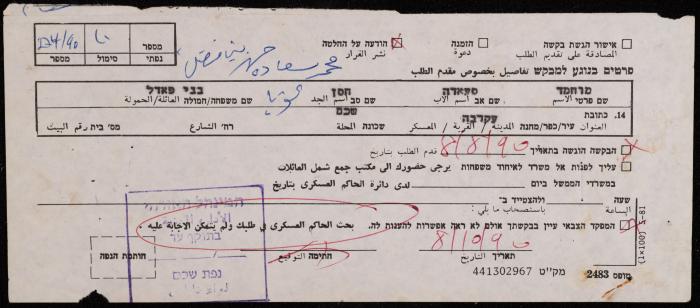 אישור הגשת בקשה ☐ הזמנה ☐ הודעה על החלטה ☒
المصادقة على تقديم الطلب دعوة نشر القرار
234/90
מספר סימול מספר נפתי
محمد سعاده حسن بني فضل
פרטים בנוגע למבקש تفاصيل بخصوص مقدم الطلب
מוחמד סעאדה חסן בני פאדל
שם פרטי الاسم שם אב اسم الأب שם סב اسم الجد שם משפחה/חמולה العائلة/الحمولة
עקרבה שכם
14. כתובת
העنوان עיר/כפר/מחנה المدينة/القرية/المعسكر שכונה المحلة רח' الشارع מס' בית رقم البيت
הבקשה הוגשה בתאריך 8/8/90 قدم الطلب بتاريخ
עליך לפנות אל משרד לאיחוד משפחות يرجى حضورك الى مكتب جمع شمل العائلات
במשרדי הממשל ביום لدى دائرة الحاكم العسكرى بتاريخ
שעה الساعة ולהצטייד ב־ باستصحاب ما يلي:
המפקד הצבאי עיין בבקשתך אולם לא ראה אפשרות להענות לה. بحث الحاكم العسكرى في طلبك ولم يتمكن الاجابة عليه
8/10/90
תאריך التاريخ חתימה التوقيع חותמת הנפה
נפת שכם
טופס 2483 מק"ט 441302967
(1×100) 5-81